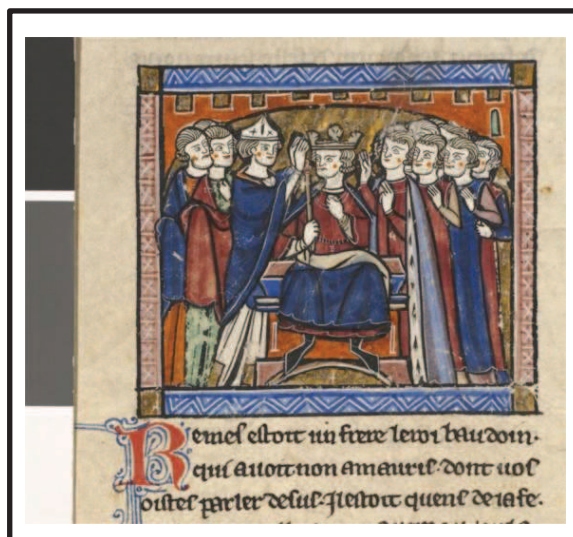 Remes estoit un frere leroi baudoin.
qui auoit non amauris. dont uos
oistes parler desus. Ilestoit quens de iafe.